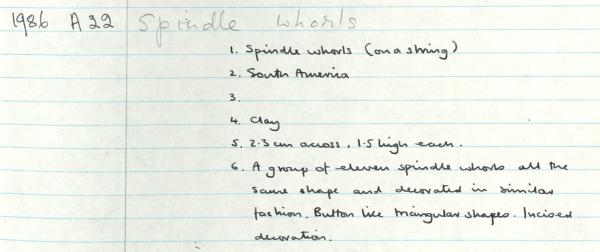 1986 A 22 Spindle whorls
1. Spindle whorls (on a string)
2. South America
3.
4. Clay
5. 2.3 cm across, 1.5 high each.
6. A group of eleven spindle whorls all the
same shape and decorated in similar
fashion. Button like triangular shapes. Incised
decoration.